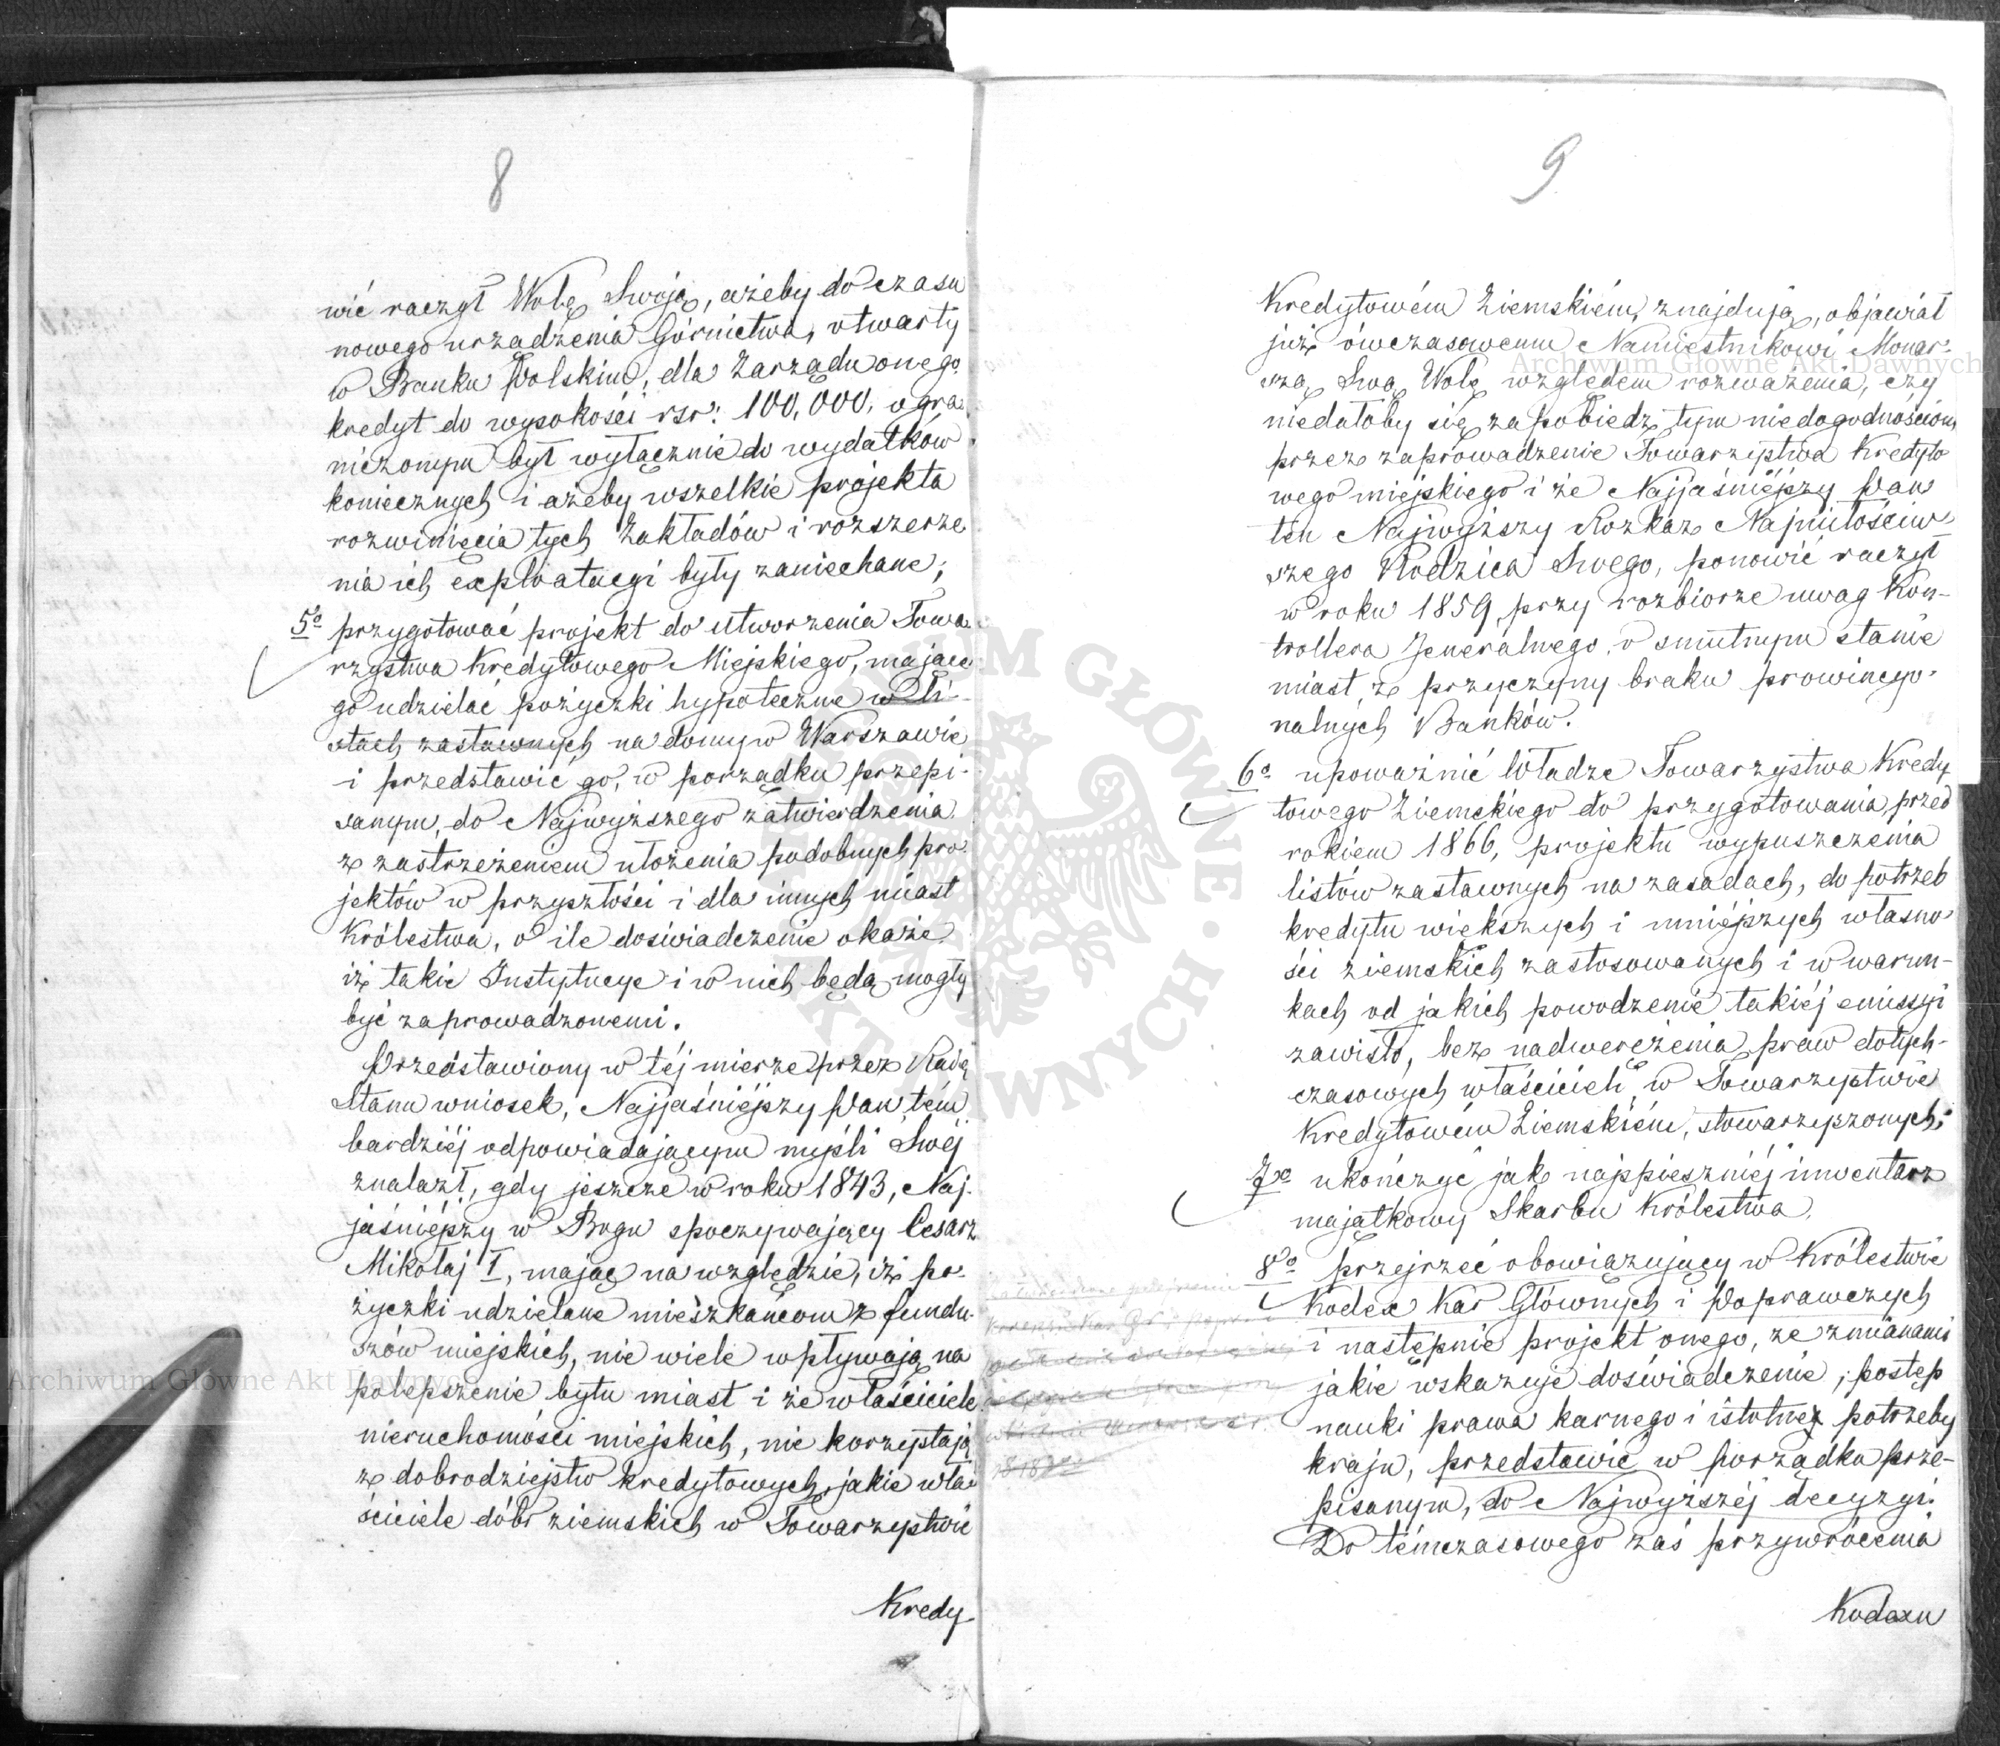 8
wić raczył Wolę Swoją, ażeby do czasu
nowego urządzenia Górnictwa, otwarty
w Banku Polskim, dla Zarządu onego
kredyt do wysokości rsr: 100,000, ogra-
niczonym był wyłącznie do wydatków
koniecznych i ażeby wszelkie projekta
rozwinięcia tych Zakładów i rozszerze
nia ich exploatacyi były zaniechane;
5o przygotować projekt do utworzenia Towa
rzystwa Kredytowego Miejskiego, mające
go udzielać pożyczki hypoteczne w li-
stach zastawnych na domy w Warszawie
i przedstawić go, w porządku przepi-
sanym, do Najwyższego zatwierdzenia
z zastrzeżeniem ułożenia podobnych pro
jektów w przyszłości i dla innych miast
Królestwa, o ile doświadczenie okaże
iż takie Instytucye i w nich będą mogły
być zaprowadzonemi.
Przedstawiony w téj mierze przez Radę
Stanu wniosek, Najjaśniéjszy Pan tém
bardziéj odpowiadającym myśli Swéj
znalazł, gdy jeszcze w roku 1843, Naj-
jaśniéjszy w Bogu spoczywający Cesarz
Mikołaj I, mając na względzie, iż po-
życzki udzielane mieszkańcom z fundu-
szów miejskich, nie wiele wpływają na
polepszenie bytu miast i że właściciele
nieruchomości miejskich, nie korzystają
z dobrodziejstw kredytowych, jakie wła
ściciele dóbr ziemskich w Towarzystwie
Kredy-
9
Kredytowém Ziemskiém, znajdują, objawiał
już ówczasowemu Namiestnikowi Monar-
szą Swą Wolę względem rozważenia, czy
niedałoby się zapobiedz tym niedogodnościom
przez zaprowadzenie Towarzystwa Kredyto
wego miejskiego i że Najjaśniéjszy Pan
ten Najwyższy Rozkaz Najmiłościw-
szego Rodzica Swego, ponowić raczył
w roku 1859, przy rozbiorze uwag Kon-
trollera Jeneralnego, o smutnym stanie
miast z przyczyny braku prowincyo-
nalnych Banków.
6o upoważnić Władze Towarzystwa Kredy
towego Ziemskiego do przygotowania, przed
rokiem 1866, projektu wypuszczenia
listów zastawnych na zasadach, do potrzeb
kredytu większych i mniéjszych własno-
ści ziemskich zastosowanych i w warun-
kach od jakich powodzenie takiéj emissyi
zawisło, bez nadweręźenia praw dotych-
czasowych właścicieli, w Towarzystwie
Kredytowém Ziemskiém, stowarzyszonych;
7o ukończyć jak najspieszniéj inwentarz
majątkowy Skarbu Królestwa.
8o Przejrzeć obowiązujący w Królestwie
Kodex Kar Głównych i Poprawczych
i następnie projekt onego, ze zmianami
jakie wskazuje doświadczenie, postęp
nauki prawa karnego i istotne potrzeby
kraju, przedstawić w porządku prze-
pisanym, do Najwyższéj decyzyi.
Do témczasowego zaś przywrócenia
Kodexu
Archiwum Główne Akt Dawnych
Archiwum Główne Akt Dawnych
ARCHIWUM GŁÓWNE · AKT DAWNYCH ·